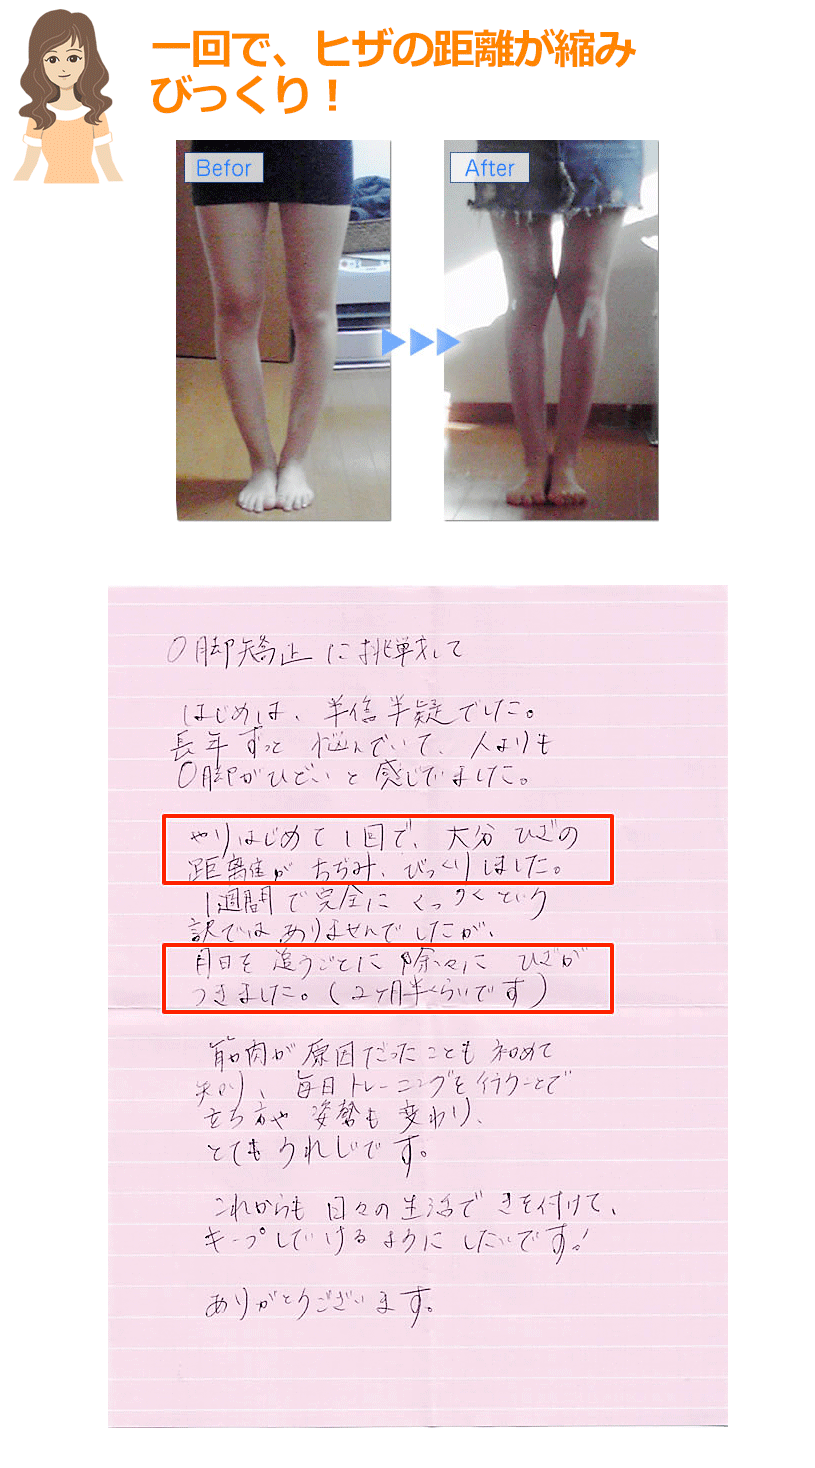 一回で、ヒザの距離が縮み
びっくり！
Befor
After
O脚矯正に挑戦して
はじめは、半信半疑でした。
長年ずっと 悩んでいて、人よりも
O脚がひどいと感じてました。
やりはじめて1回で、大分ひざの
距離がちぢみ、びっくりしました。
1週間で完全にくっつくという
訳ではありませんでしたが、
月日を追うごとに徐々にひざが
つきました。(2ヶ月半くらいです)
筋肉が原因だったことも初めて
知り、毎日トレーニングを行うことで
立ち方や姿勢も変わり、
とてもうれしいです。
これからも日々の生活で きを付けて、
キープしていけるようにしたいです！
ありがとうございます。